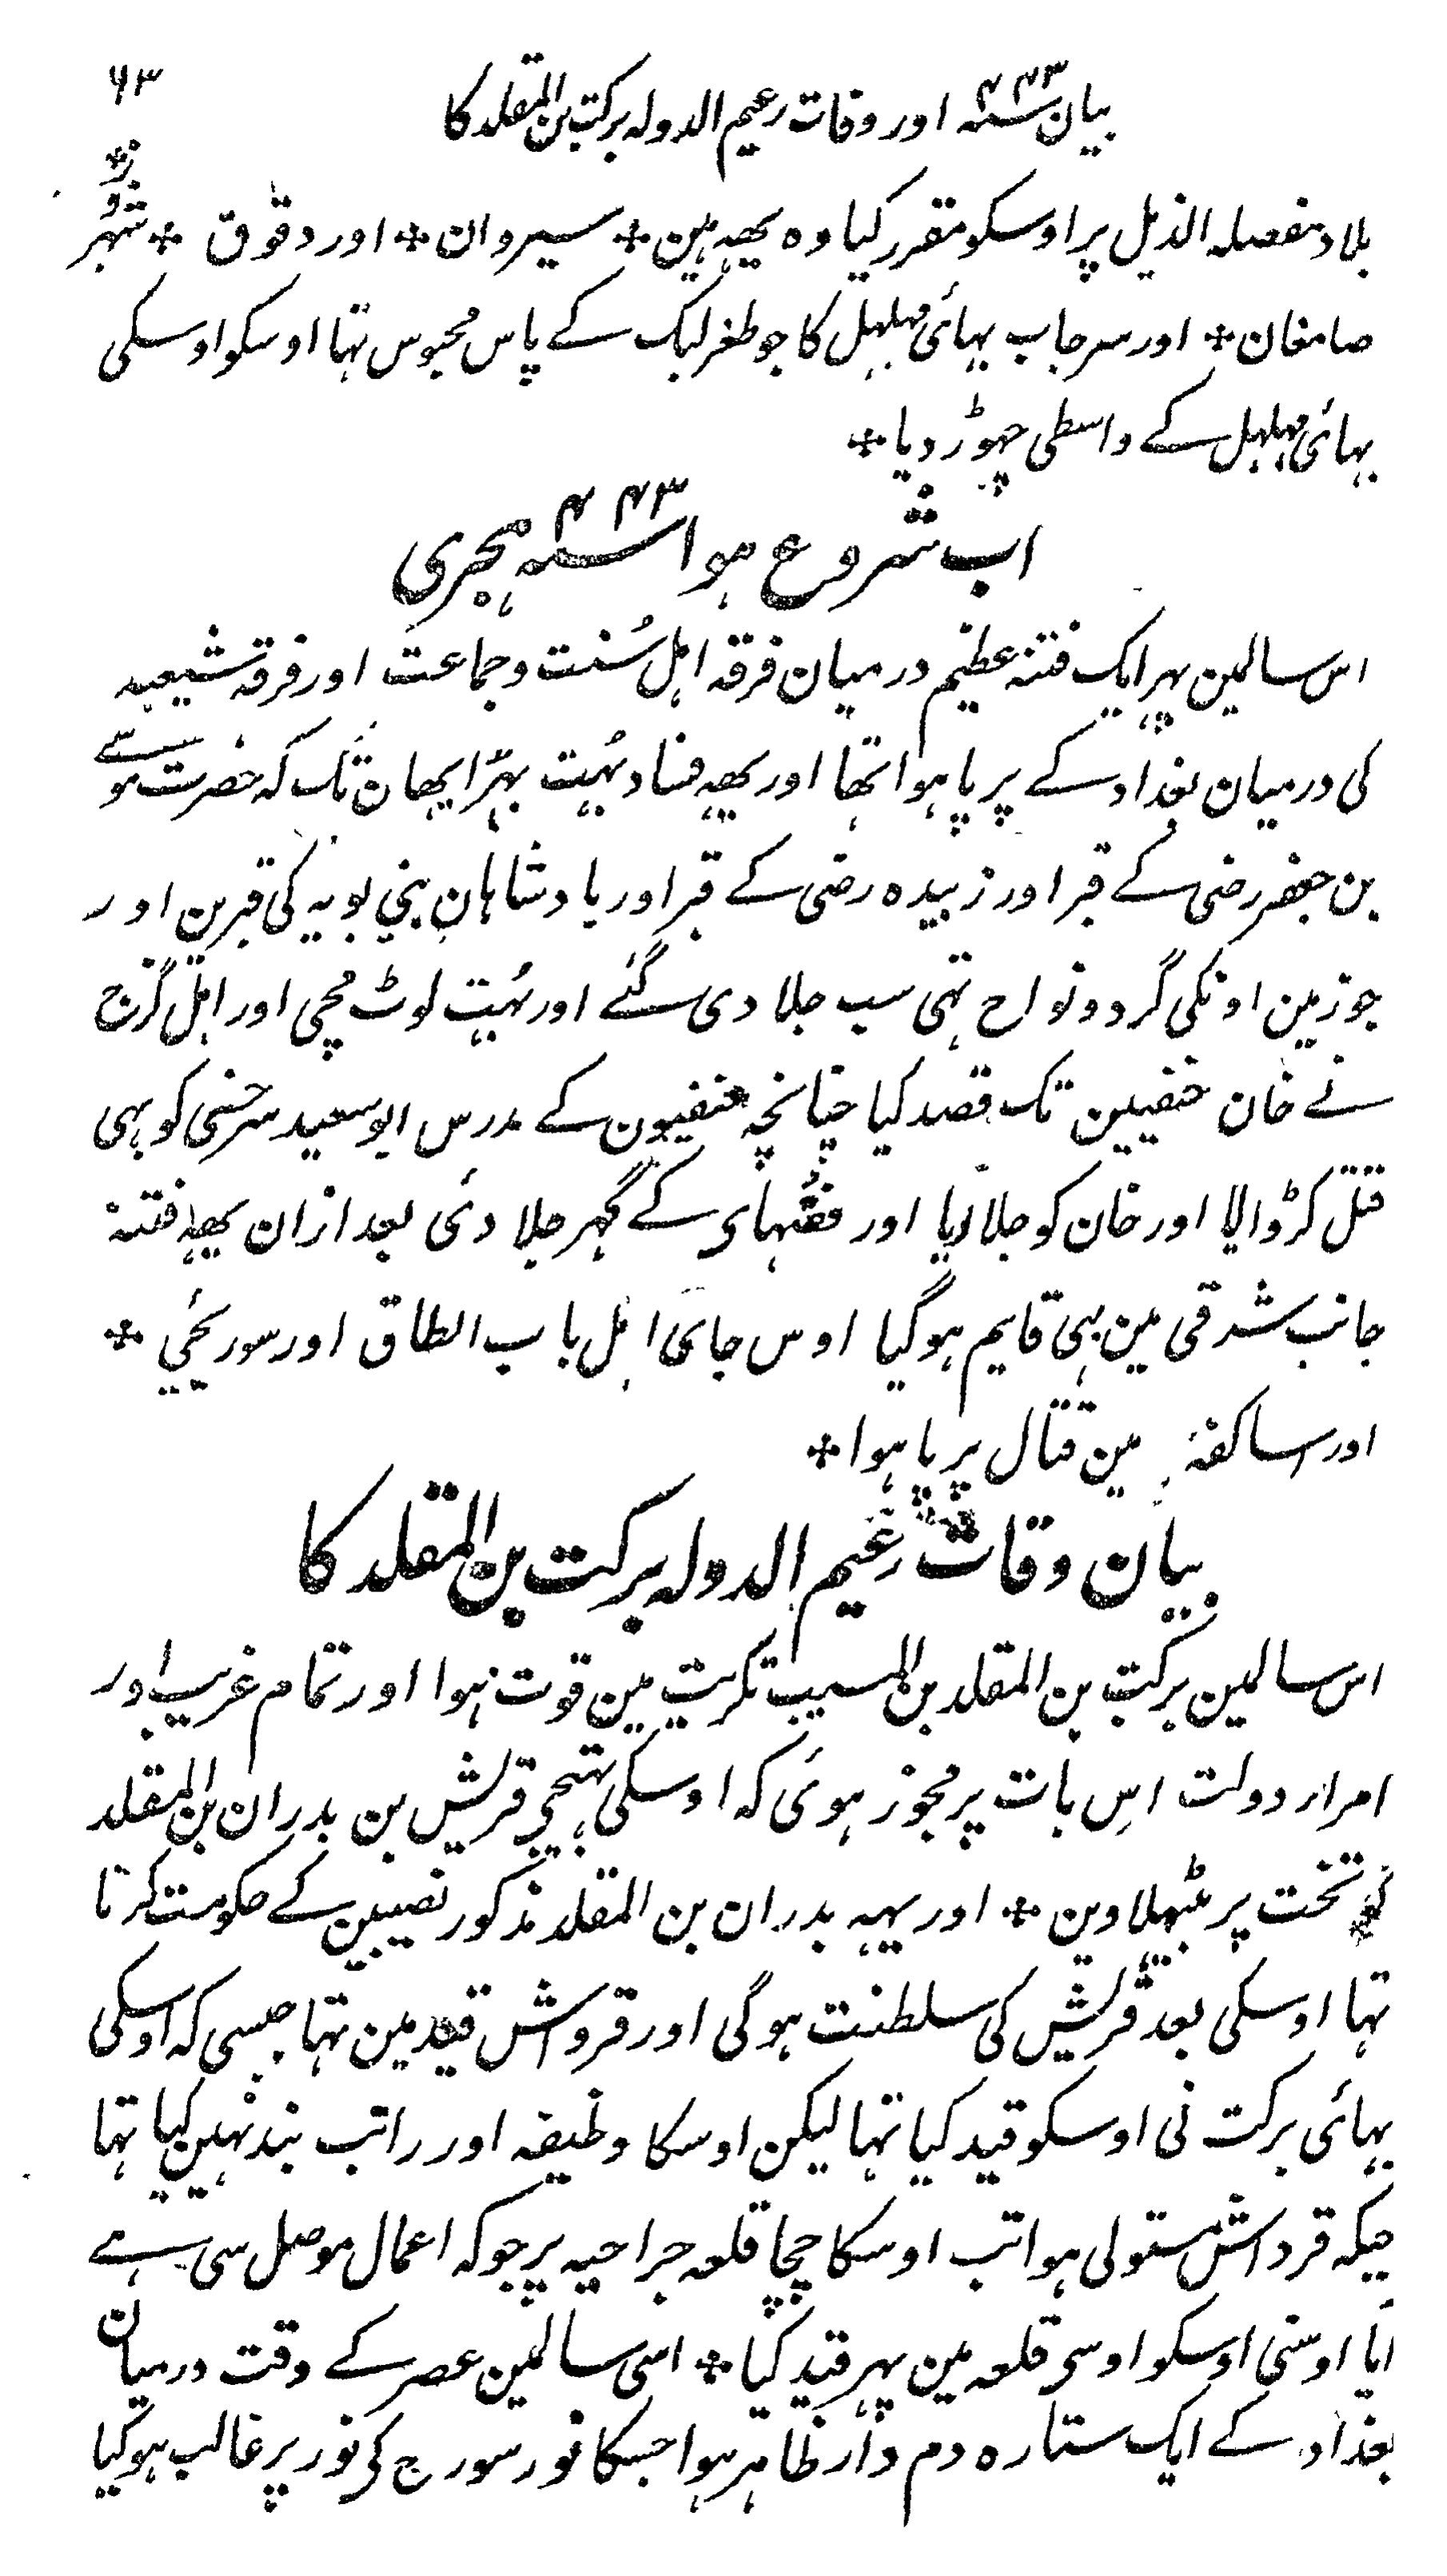 ۶۳
بیان سنہ ۴۴۳ اور وفات زعیم الدولہ برکت بن المقلد کا
بلاد مفصلہ الذیل پر اوسکو مقرر کیا وہ یھہ ہین ٭ سیروان ٭ اور دقوق ٭ شہر زور
صامغان ٭ اور سرحاب بہائی مہلہل کا جو طغرلبک کے پاس محبوس تہا اوسکو اوسکی
بہائی مہلہل کے واسطی چہوڑ دیا ٭
اب شروع ہوا سنہ ۴۴۳ ہجری
اس سالمین پہر ایک فتنہ عظیم درمیان فرقہ اہل سُنت و جماعت اور فرقہ شیعیہ
کی درمیان بغداد کے برپا ہوا تھا اور یھہ فساد بُہت بہڑا یھان تک کہ حضرت موسے
بن جعفر رضی کے قبر اور زبیدہ رضی کے قبر اور بادشاہان بنی بویہ کی قبرین اور
جو زمین اونکی گرد و نواح تہی سب جلا دی گئے اور بُہت لوٹ مچی اور اہل کرخ
نے خان حنفیین تک قصد کیا چنانچہ حنفیون کے مدرس ابو سعید سرخسی کو بہی
قتل کر ڈوالا اور خان کو جلا دیا اور فقہای کے گہر جلا دئی بعد ازان یھہ فتنہ
جانب شرقی مین بہی قایم ہو گیا اوس جای اہل باب الطاق اور سور یحیي ٭
اور اساکفہ مین قتال برپا ہوا ٭
بیان وفات زعیم الدولہ برکت بن المقلد کا
اس سالمین برکت بن المقلد بن المسیب تکریت مین فوت ہوا اور تمام عرب اور
امراء دولت اِس بات پر مجوز ہوئی کہ اوسکی بہتیجی قریش بن بدران بن المقلد
کو تخت پر بٹہلاوین ٭ اور یہہ بدران بن المقلد مذکور نصیبین کے حکومت کرتا
تہا اوسکی بعد قریش کی سلطنت ہوگی اور قرواش قید مین تہا جیسی کہ اوسکی
بہائی برکت نی اوسکو قید کیا تہا لیکن اوسکا وظیفہ اور راتب بند نہین کیا تہا
جبکہ قرواش مستولی ہوا تب اوسکا چچا قلعہ جراحیہ پر جو کہ اعمال موصل سی ہے
ایا اوسنی اوسکو اوسی قلعہ مین پہر قید کیا ٭ اسی سالمین عصر کے وقت درمیان
بغداد کے ایک ستارہ دم دار ظاہر ہوا جسکا نور سورج کی نور پر غالب ہو گیا